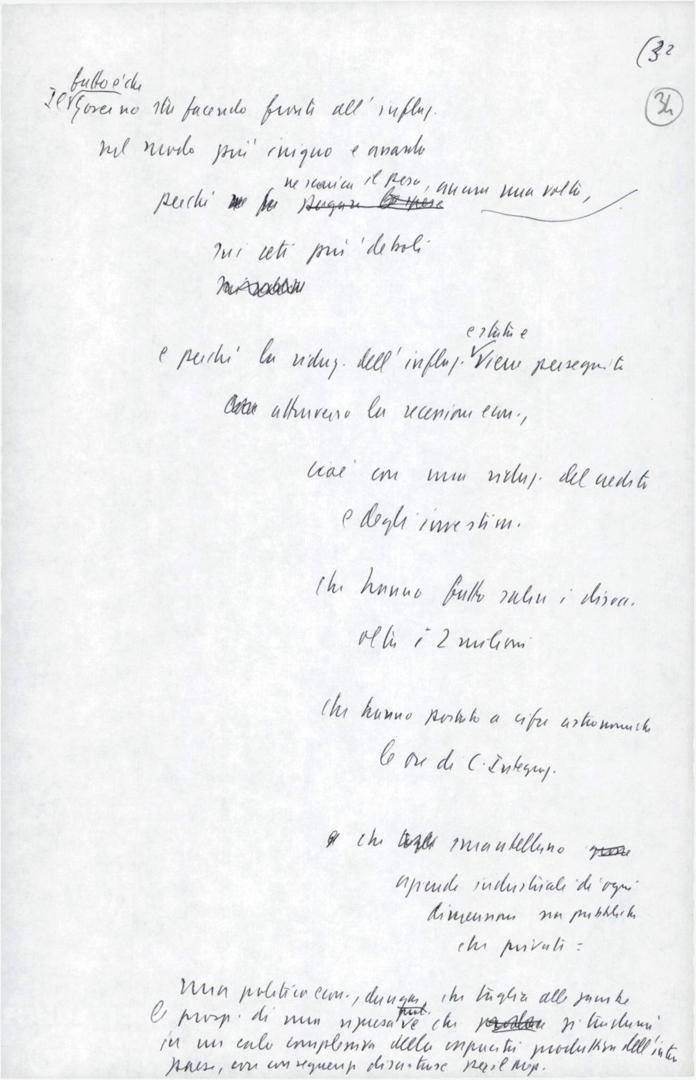 (32
34
fatto è che
Il Governo sta facendo fronte all'inflaz.
nel modo più iniquo e
ne scarica il peso, ancora una volta,
perché ne fa pagare le spese
sui ceti più deboli
e perché la riduz. dell'inflaz. viene perseguita
attraverso la recessione econ.,
cioè con una riduz. del credito
e degli investim.
che hanno fatto salire i disocc.
oltre i 2 milioni
che hanno portato a cifre astronomiche
le ore di C. Integraz.
e che smantellano
aziende industriali di ogni
dimensione sia pubbliche
che private =
una politica econ., dunque, che taglia alle gambe
le prosp. di una ripresa che si traduce
in un calo complessivo della capacità produttiva dell'intero
paese, con conseguenze disastrose per il